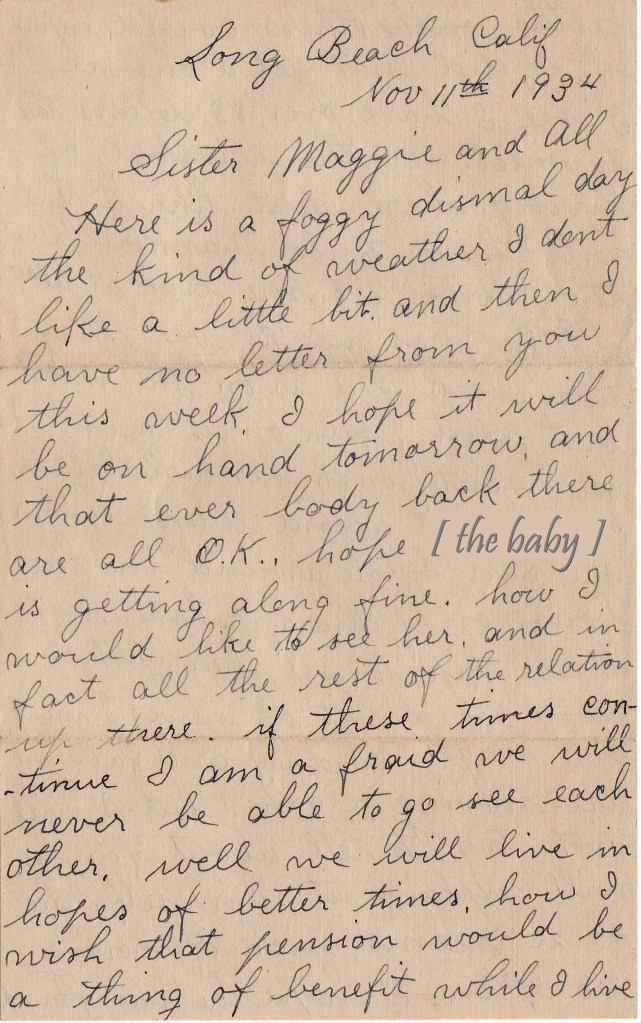 Long Beach Calif
Nov 11th 1934
Sister Maggie and All
Here is a foggy dismal day
the kind of weather I dont
like a little bit. and then I
have no letter from you
this week. I hope it will
be on hand tomorrow, and
that ever body back there
are all O.K., hope [ the baby ]
is getting along fine. how I
would like to see her. and in
fact all the rest of the relation
up there. if these times con-
-tinue I am a fraid we will
never be able to go see each
other, well we will live in
hopes of better times, how I
wish that pension would be
a thing of benefit while I live